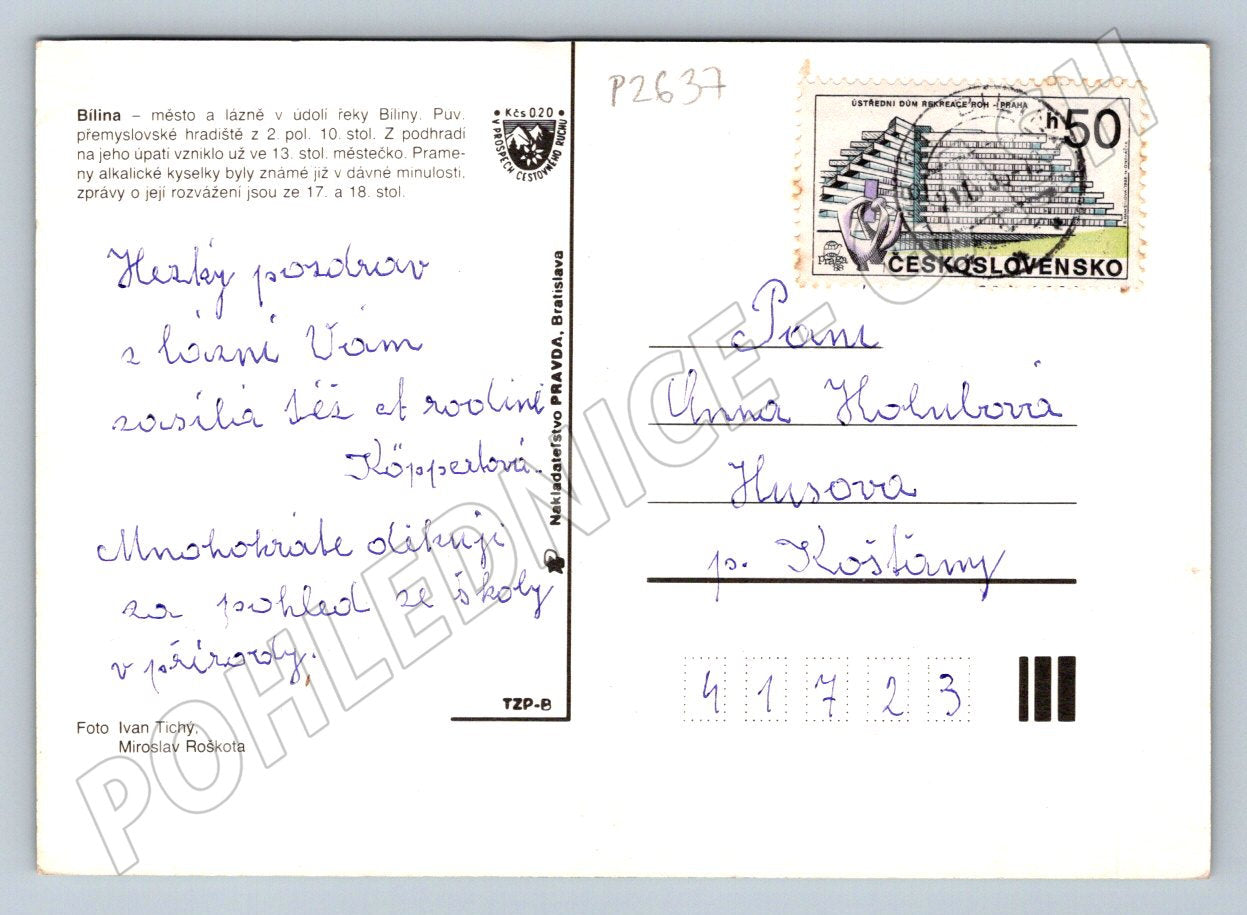 P2637
Bílina – město a lázně v údolí řeky Bíliny. Pův.
přemyslovské hradiště z 2. pol. 10. stol. Z podhradí
na jeho úpatí vzniklo už ve 13. stol. městečko. Prame-
ny alkalické kyselky byly známé již v dávné minulosti,
zprávy o její rozvážení jsou ze 17. a 18. stol.
• Kčs 0,20 •
V PROSPĚCH CESTOVNÉHO RUCHU
Hezký pozdrav
z lázní Vám
zasílá též et rodině
Köppertová.
Mnohokráte děkuji
za pohled ze školy
v přírody.
Foto Ivan Tichý,
Miroslav Roškota
Nakladateľstvo PRAVDA, Bratislava
TZP-B
ÚSTŘEDNÍ DŮM REKREACE ROH - PRAHA
h50
Praga
88
ČESKOSLOVENSKO
Paní
Anna Holubová
Husova
p. Košťany
41723
POHLEDNICE -